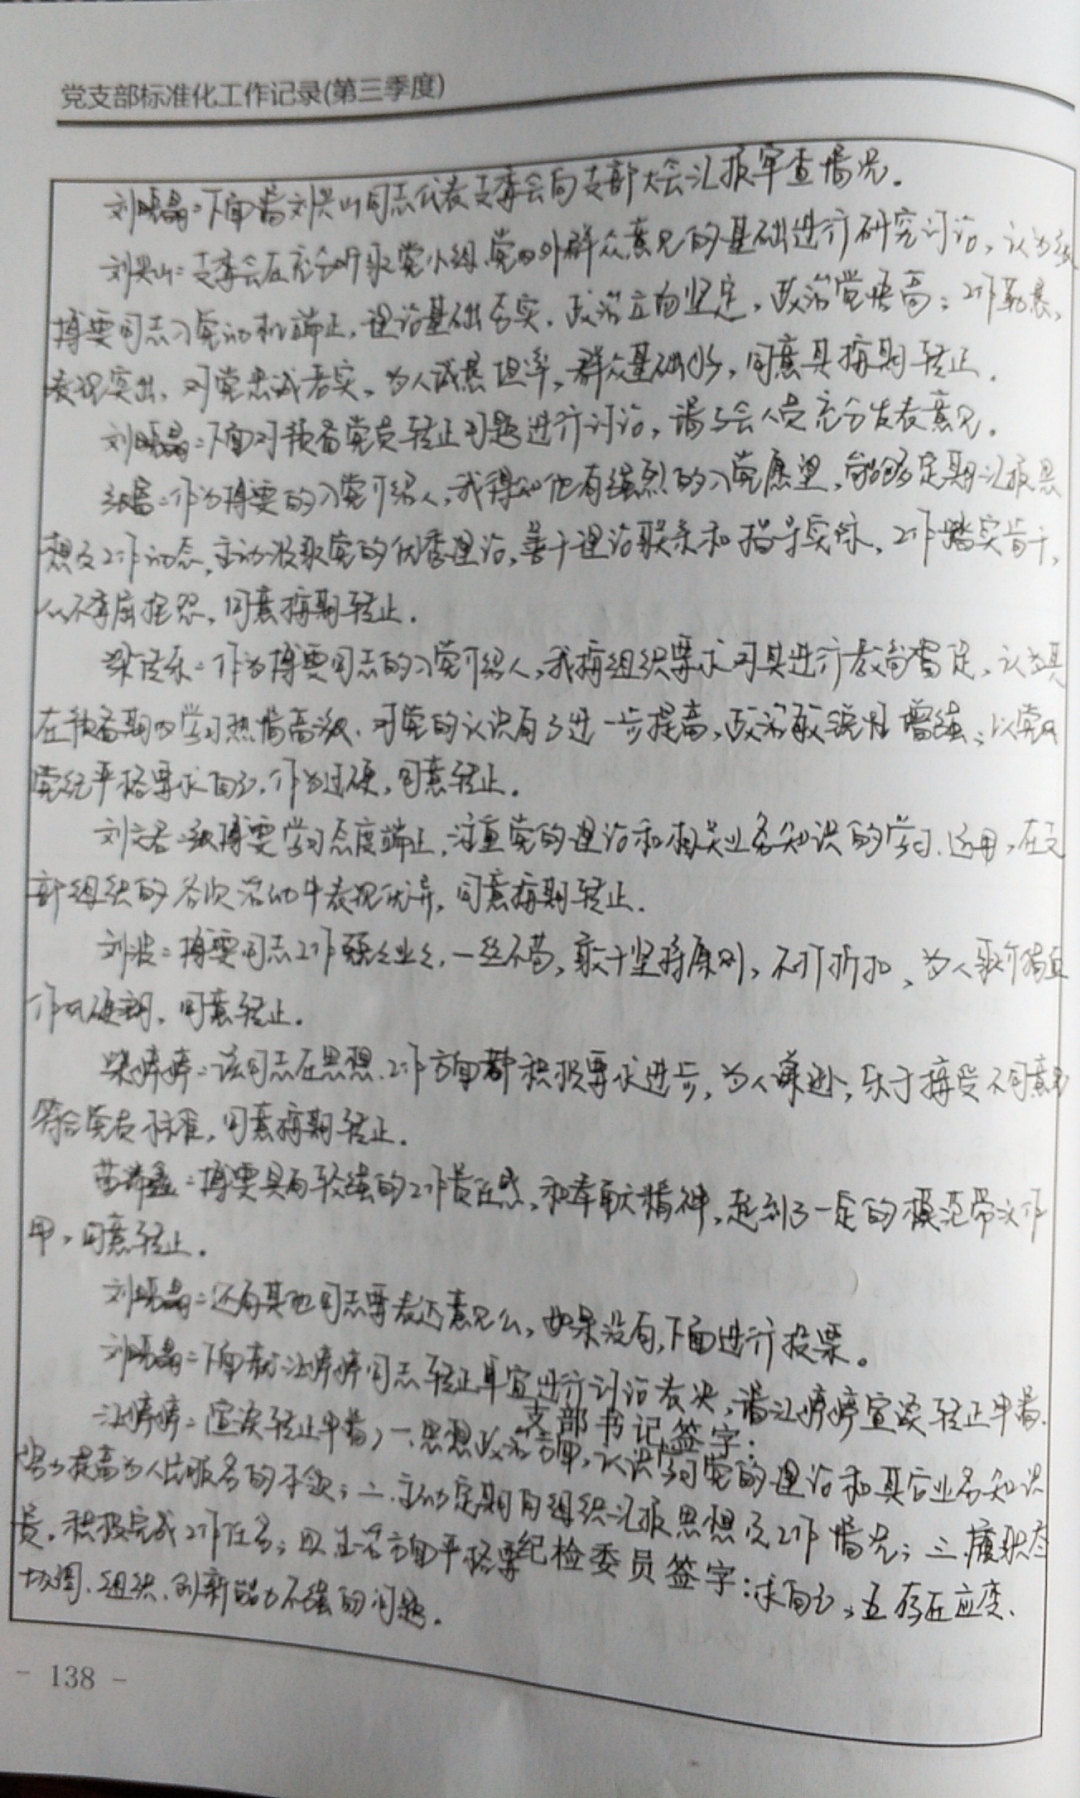 党支部标准化工作记录(第三季度)
刘晓晶：下面请刘兴山同志代表支委会向支部大会汇报审查情况。
刘兴山：支委会在充分听取党小组、党内外群众意见的基础进行研究讨论，认为
博要同志入党动机端正，理论基础夯实，政治立场坚定，政治觉悟高；工作勤恳，
表现突出，对党忠诚老实，为人诚恳坦率，群众基础好，同意其按期转正。
刘晓晶：下面对预备党员转正问题进行讨论，请与会人员充分发表意见。
作为博要的入党介绍人，我得知他有强烈的入党愿望，能够定期汇报思
想及工作动态，主动汲取党的优秀理论，善于理论联系和指导实际，工作踏实肯干，
同意按期转正。
作为博要同志的入党介绍人，我按组织要求对其进行教育，认为其
在预备期内学习热情高涨，对党的认识有了进一步提高，政治敏锐性增强，以党风
党纪严格要求自己，作为过硬，同意转正。
博要学习态度端正，注重党的理论和相关业务知识的学习、运用，在支
部组织的各次活动中表现优异，同意按期转正。
刘波：博要同志工作兢兢业业，一丝不苟，敢于坚持原则，不打折扣，为人
作风硬朗，同意转正。
柴婷婷：该同志在思想、工作方面都积极要求进步，为人谦逊，乐于接受不同意见
符合党员标准，同意按期转正。
博要具有较强的工作责任感，和奉献精神，起到了一定的模范带头作
用，同意转正。
刘晓晶：还有其他同志要表达意见么，如果没有，下面进行投票。
刘晓晶：下面就汪婷婷同志转正事宜进行讨论表决，请汪婷婷宣读转正申请。
汪婷婷：（宣读转正申请）一、思想政治方面，认识学习党的理论和其它业务知识
支部书记签字：
努力提高为人民服务的本领；二、主动定期向组织汇报思想及工作情况；三、履职尽
责，积极完成工作任务；四、生活方面严格要求自己；五、存在应变、
纪检委员签字：
协调、组织、创新能力不强的问题。
- 138 -